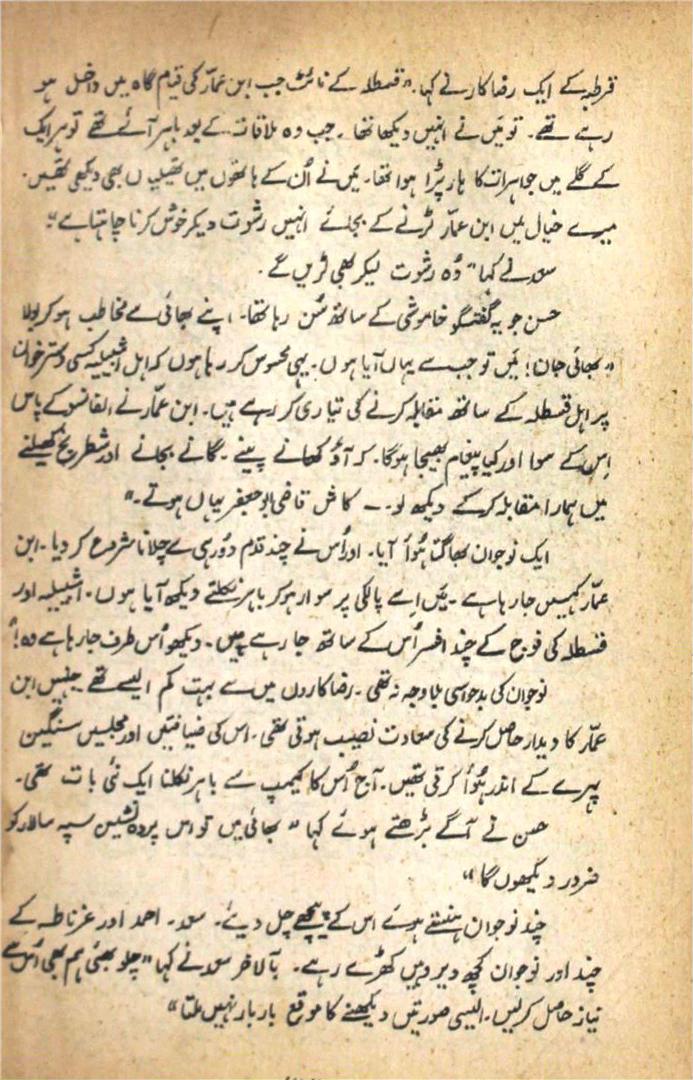 قرطبہ کے ایک رضا کار نے کہا۔ "قسطلہ کے نائٹ جب ابن عمار کی قیام گاہ میں داخل ہو
رہے تھے۔ تو میں نے انہیں دیکھا تھا۔ جب وہ ملاقات کے بعد باہر آئے تھے تو ہر ایک
کے گلے میں جواہرات کا ہار پڑا ہوا تھا۔ میں نے اُن کے ہاتھوں میں تھیلیاں بھی دیکھی تھیں۔
میرے خیال میں ابن عمار لڑنے کے بجائے انہیں رشوت دیکر خوش کرنا چاہتا ہے"۔
سعد نے کہا "وُہ رشوت لیکر بھی لڑیں گے۔
حسن جو یہ گفتگو خاموشی کے ساتھ سُن رہا تھا۔ اپنے بھائی سے مخاطب ہو کر بولا
"بھائی جان! میں تو جب سے یہاں آیا ہوں۔ یہی محسوس کر رہا ہوں کہ اہل اشبیلیہ کسی دسترخوان
پر اہل قسطلہ کے ساتھ مقابلہ کرنے کی تیاری کر رہے ہیں۔ ابن عمار نے الفانسو کے پاس
اِس کے سوا اور کیا پیغام بھیجا ہوگا۔ کہ آؤ کھانے پینے۔ گانے بجانے اور شطرنج کھیلنے
میں ہمارا مقابلہ کر کے دیکھ لو۔ — کاش قاضی ابو جعفر یہاں ہوتے۔"
ایک نوجوان بھاگتا ہُوا آیا۔ اور اُس نے چند قدم دُور ہی سے چلانا شروع کر دیا۔ ابن
عمار کہیں جا رہا ہے۔ میں اسے پالکی پر سوار ہو کر باہر نکلتے دیکھ آیا ہوں۔ اشبیلیہ اور
قسطلہ کی فوج کے چند افسر اُس کے ساتھ جا رہے ہیں۔ دیکھو اُس طرف جا رہا ہے وہ!"
نوجوان کی بدحواسی بلا وجہ نہ تھی۔ رضا کاروں میں سے بہت کم ایسے تھے جنہیں ابن
عمار کا دیدار حاصل کرنے کی سعادت نصیب ہوتی تھی۔ اس کی ضیافتیں اور مجلسیں سنگین
پہرے کے اندر ہُوا کرتی تھیں۔ آج اُس کا کیمپ سے باہر نکلنا ایک نئی بات تھی۔
حسن نے آگے بڑھتے ہوئے کہا "بھائی میں تو اس پردہ نشین سپہ سالار کو
ضرور دیکھوں گا"
چند نوجوان ہنستے ہوئے اس کے پیچھے چل دیئے۔ سعد۔ احمد اور غرناطہ کے
چند اور نوجوان کچھ دیر وہیں کھڑے رہے۔ بالآخر سعد نے کہا "چلو بھئی ہم بھی اُس سے
نیاز حاصل کر لیں۔ ایسی صورتیں دیکھنے کا موقع بار بار نہیں ملتا"